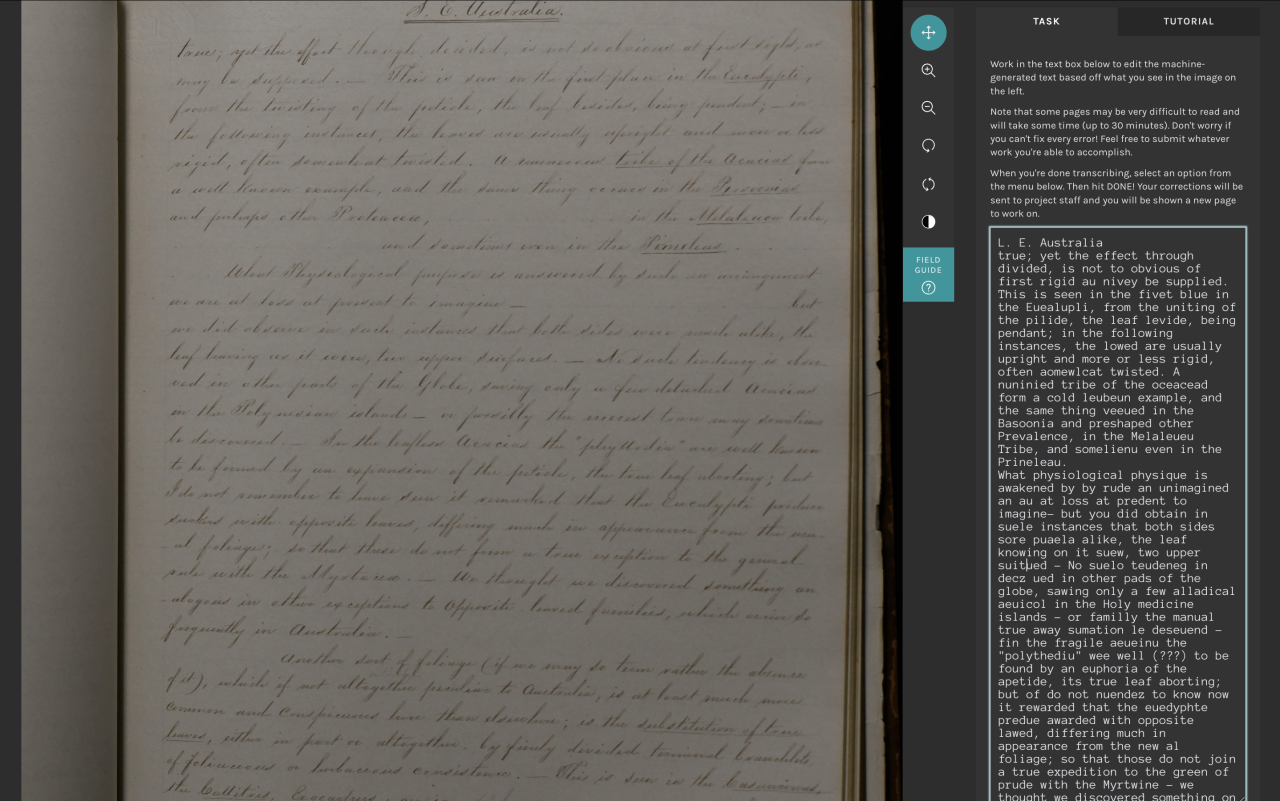 S. E. Australia.
true; yet the effect through decided, is not so obvious at first sight, as
may be supposed. — This is seen in the first place in the Eucalypti,
from the twisting of the petiole, the leaf besides, being pendent; — in
the following instances, the leaves are usually upright and more or less
rigid, often somewhat twisted. A numerous tribe of the Acacias form
a well known example, and the same thing occurs in the Persoonias
and perhaps other Proteaceæ, in the Melaleuca tribe,
and sometimes even in the Pimeleas.
What Physiological purpose is answered by such an arrangement
we are at loss at present to imagine — but
we did observe in such instances that both sides were made alike, the
leaf having as it were, two upper surfaces. — No such tendency is obser
ved in other parts of the Globe, saving only a few detached Acacias
in the Polynesian islands — or possibly the merest trace may sometimes
be discovered. — In the leafless Acacias the "phyllodia" are well known
to be formed by an expansion of the petiole, the true leaf aborting; but
I do not remember to have seen it remarked that the Eucalypti produce
suckers with opposite leaves, differing much in appearance from the usu-
-al foliage; so that these do not form a true exception to the general
rule with the Myrtaceæ. — We thought we discovered something an
-alogous in other exceptions to Opposite leaved families, which occur so
frequently in Australia. —
Another sort of foliage (if we may so term rather the absence
of it), which if not altogether peculiar to Australia, is at least much more
common and conspicuous here than elsewhere; is the substitution of true
leaves, either in part or altogether, by finely divided terminal branchlets,
of foliaceous or herbaceous consistence. — This is seen in the Casuarinas,
the Callitris, Exocarpus,
TASK
TUTORIAL
FIELD
GUIDE
Work in the text box below to edit the machine-
generated text based off what you see in the image on
the left.
Note that some pages may be very difficult to read and
will take some time (up to 30 minutes). Don't worry if
you can't fix every error! Feel free to submit whatever
work you're able to accomplish.
When you're done transcribing, select an option from
the menu below. Then hit DONE! Your corrections will be
sent to project staff and you will be shown a new page
to work on.
L. E. Australia
true; yet the effect through
divided, is not to obvious of
first rigid au nivey be supplied.
This is seen in the fivet blue in
the Euealupli, from the uniting of
the pilide, the leaf levide, being
pendant; in the following
instances, the lowed are usually
upright and more or less rigid,
often aomewlcat twisted. A
nuninied tribe of the oceacead
form a cold leubeun example, and
the same thing veeued in the
Basoonia and preshaped other
Prevalence, in the Melaleueu
Tribe, and somelienu even in the
Prineleau.
What physiological physique is
awakened by by rude an unimagined
an au at loss at predent to
imagine– but you did obtain in
suele instances that both sides
sore puaela alike, the leaf
knowing on it suew, two upper
suitued – No suelo teudeneg in
decz ued in other pads of the
globe, sawing only a few alladical
aeuicol in the Holy medicine
islands – or familly the manual
true away sumation le deseuend –
fin the fragile aeueinu the
"polythediu" wee well (???) to be
found by an euphoria of the
apetide, its true leaf aborting;
but of do not nuendez to know now
it rewarded that the euedyphte
predue awarded with opposite
lawed, differing much in
appearance from the new al
foliage; so that those do not join
a true expedition to the green of
prude with the Myrtwine – we
thought we discovered something on